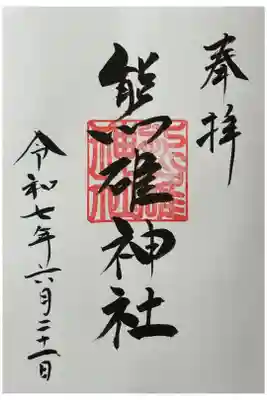 奉拝
熊碓神社
熊碓
神社
令和七年六月二十一日